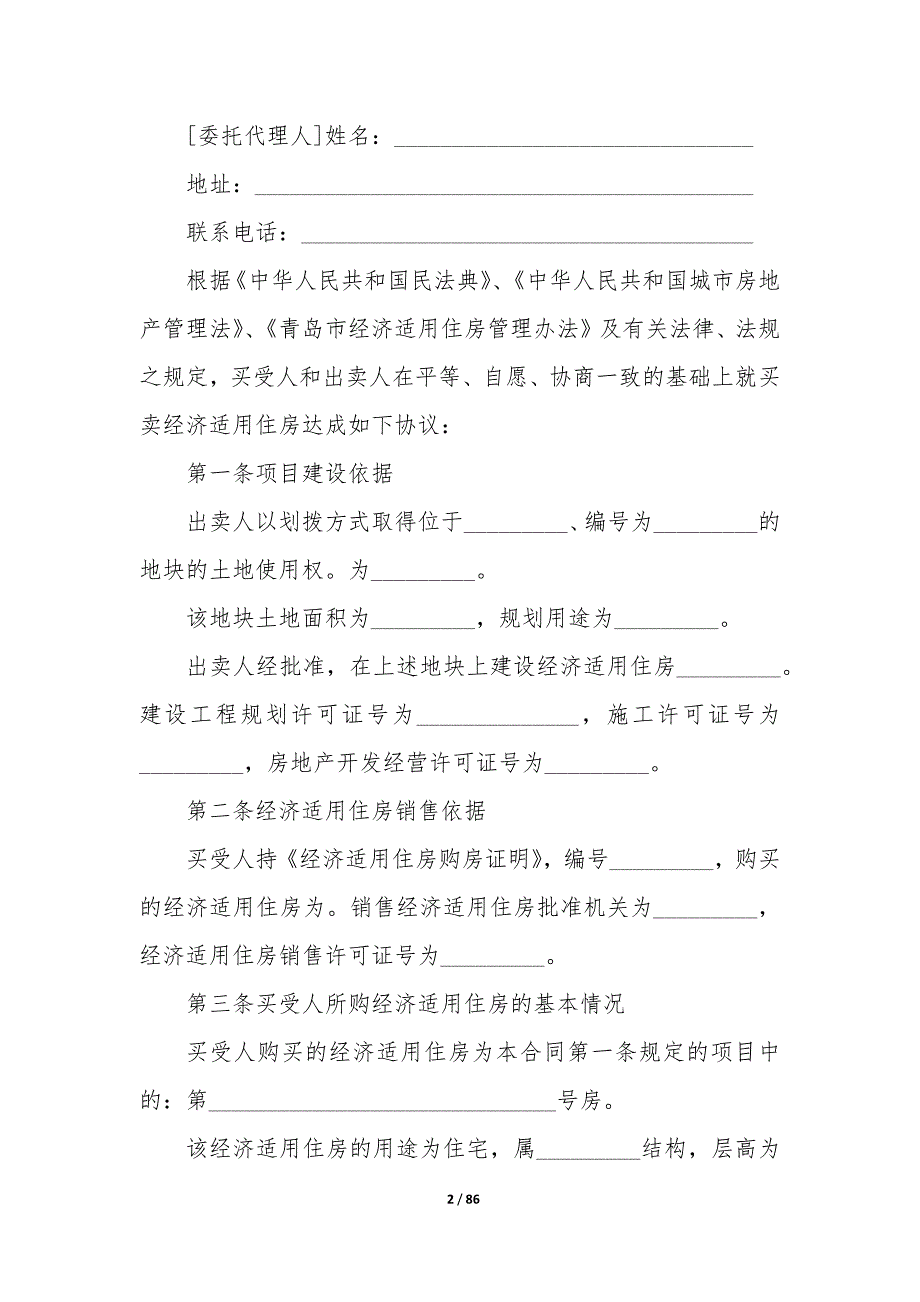 [委托代理人]姓名：_______________________________
地址：___________________________________________
联系电话：_______________________________________
根据《中华人民共和国民法典》、《中华人民共和国城市房地
产管理法》、《青岛市经济适用住房管理办法》及有关法律、法规
之规定，买受人和出卖人在平等、自愿、协商一致的基础上就买
卖经济适用住房达成如下协议：
第一条项目建设依据
出卖人以划拨方式取得位于_________、编号为_________的
地块的土地使用权。为_________。
该地块土地面积为_________，规划用途为_________。
出卖人经批准，在上述地块上建设经济适用住房_________。
建设工程规划许可证号为______________，施工许可证号为
_________，房地产开发经营许可证号为_________。
第二条经济适用住房销售依据
买受人持《经济适用住房购房证明》，编号_________，购买
的经济适用住房为。销售经济适用住房批准机关为_________，
经济适用住房销售许可证号为_________。
第三条买受人所购经济适用住房的基本情况
买受人购买的经济适用住房为本合同第一条规定的项目中
的：第______________________________号房。
该经济适用住房的用途为住宅，属_________结构，层高为
2 / 86